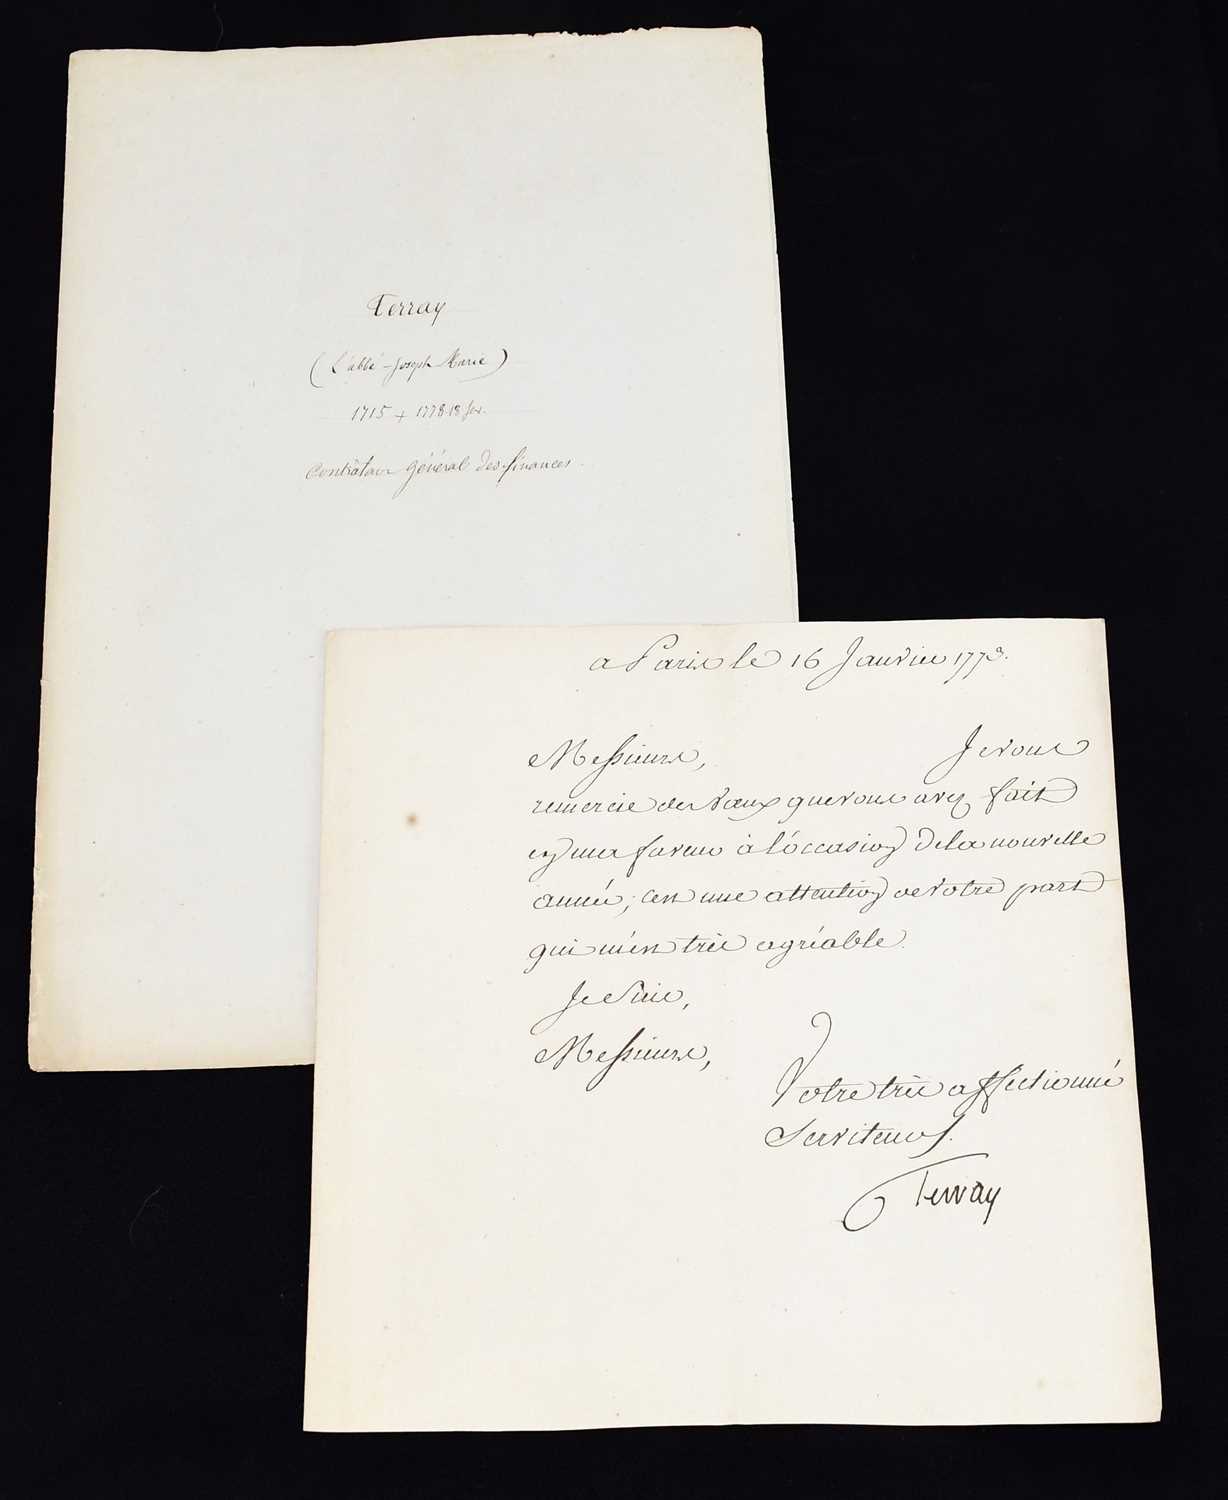 Terray
(L'abbé Joseph Marie)
1715 + 1778 18 fev.
Contrôleur général des finances.
a Paris le 16 Janvier 1773.
Messieurs, Je vous
remercie des vœux que vous avez fait
en ma faveur à l'occasion de la nouvelle
année; c'est une attention de votre part
qui m'est très agréable.
Je suis,
Messieurs,
Votre très affectionné
Serviteur.
Terray